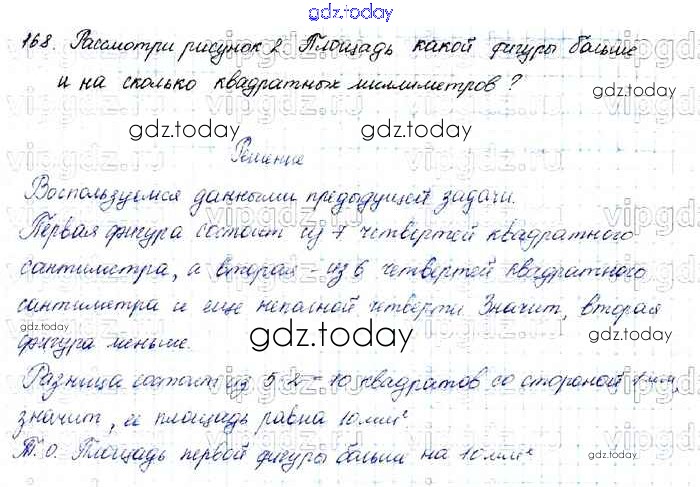 gdz.today
168. Рассмотри рисунок 2. Площадь какой фигуры больше
и на сколько квадратных миллиметров?
gdz.today
gdz.today gdz.today
Решение
Воспользуемся данными предыдущей задачи.
Первая фигура состоит из 7 четвертей квадратного
сантиметра, а вторая – из 6 четвертей квадратного
сантиметра и еще неполной четверти. Значит, вторая
gdz.today gdz.today gdz.today
фигура меньше.
Разница состоит из 5·2=10 квадратов со стороной 1 мм,
значит, её площадь равна 10 мм²
Т.о. Площадь первой фигуры больше на 10 мм²
gdz.today gdz.today